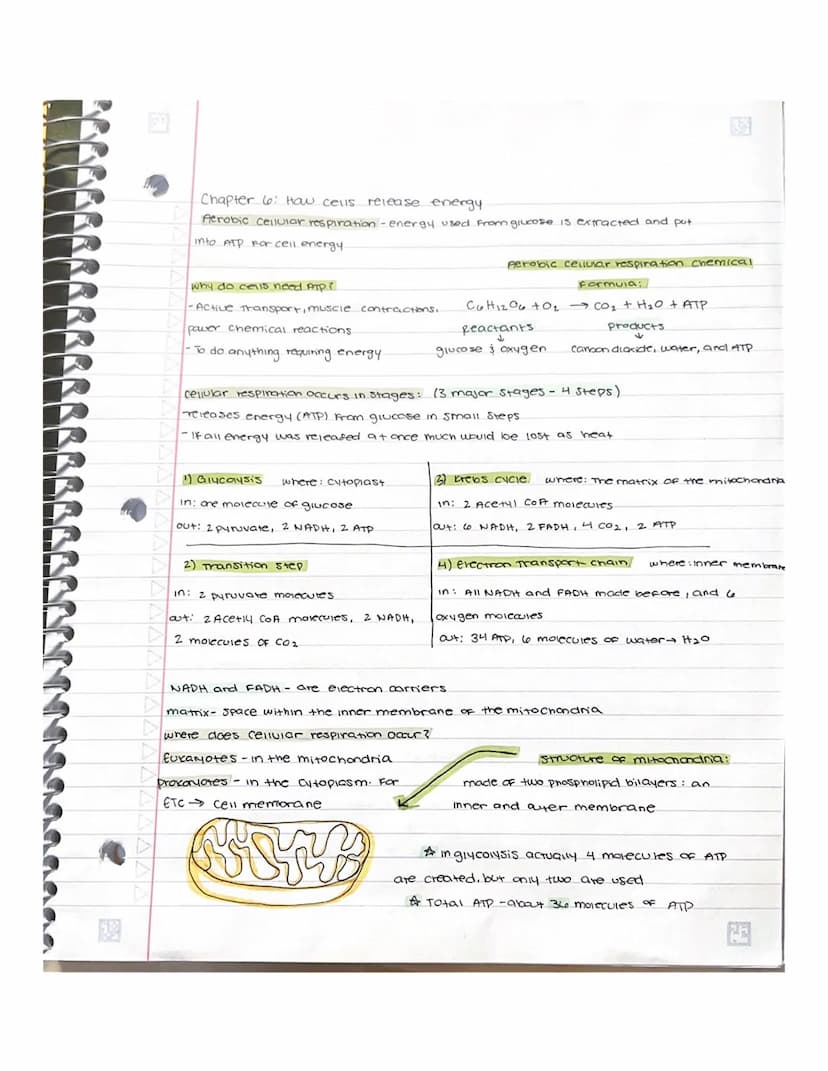 Chapter 6: How cells release energy
Aerobic cellular respiration - energy used from glucose is extracted and put
into ATP for cell energy
Aerobic cellular respiration chemical
formula:
Why do cells need ATP?
- Active Transport, muscle contractions,
power chemical reactions
- To do anything requiring energy
C6H12O6 + O2 → CO2 + H2O + ATP
Reactants
products
↓
↓
glucose & oxygen
carbon dioxide, water, and ATP
Cellular respiration occurs in stages: (3 major stages - 4 steps)
- releases energy (ATP) from glucose in small steps
- If all energy was released at once much would be lost as heat
1) Glycolysis where: cytoplast
in: one molecule of glucose
out: 2 pyruvate, 2 NADH, 2 ATP
3) Krebs cycle: where: The matrix of the mitochondria
in: 2 Acetyl CoA molecules
out: 6 NADH, 2 FADH, 4 CO2, 2 ATP
2) Transition Step
in: 2 pyruvate molecules
out: 2 Acetly CoA molecules, 2 NADH,
2 molecules of CO2
4) Electron Transport chain where: inner membrane
in: All NADH and FADH made before, and 6
oxygen molecules
out: 34 ATP, 6 molecules of water → H2O
NADH and FADH - are electron carriers
matrix - space within the inner membrane of the mitochondria
where does cellular respiration occur?
Eukaryotes - in the mitochondria
prokaryotes - in the cytoplasm. For
ETC → cell membrane
Structure of mitochondria:
made of two phospholipid bilayers: an
inner and outer membrane
☆ in glycolysis actually 4 molecules of ATP
are created, but only two are used
☆ Total ATP - about 36 molecules of ATP